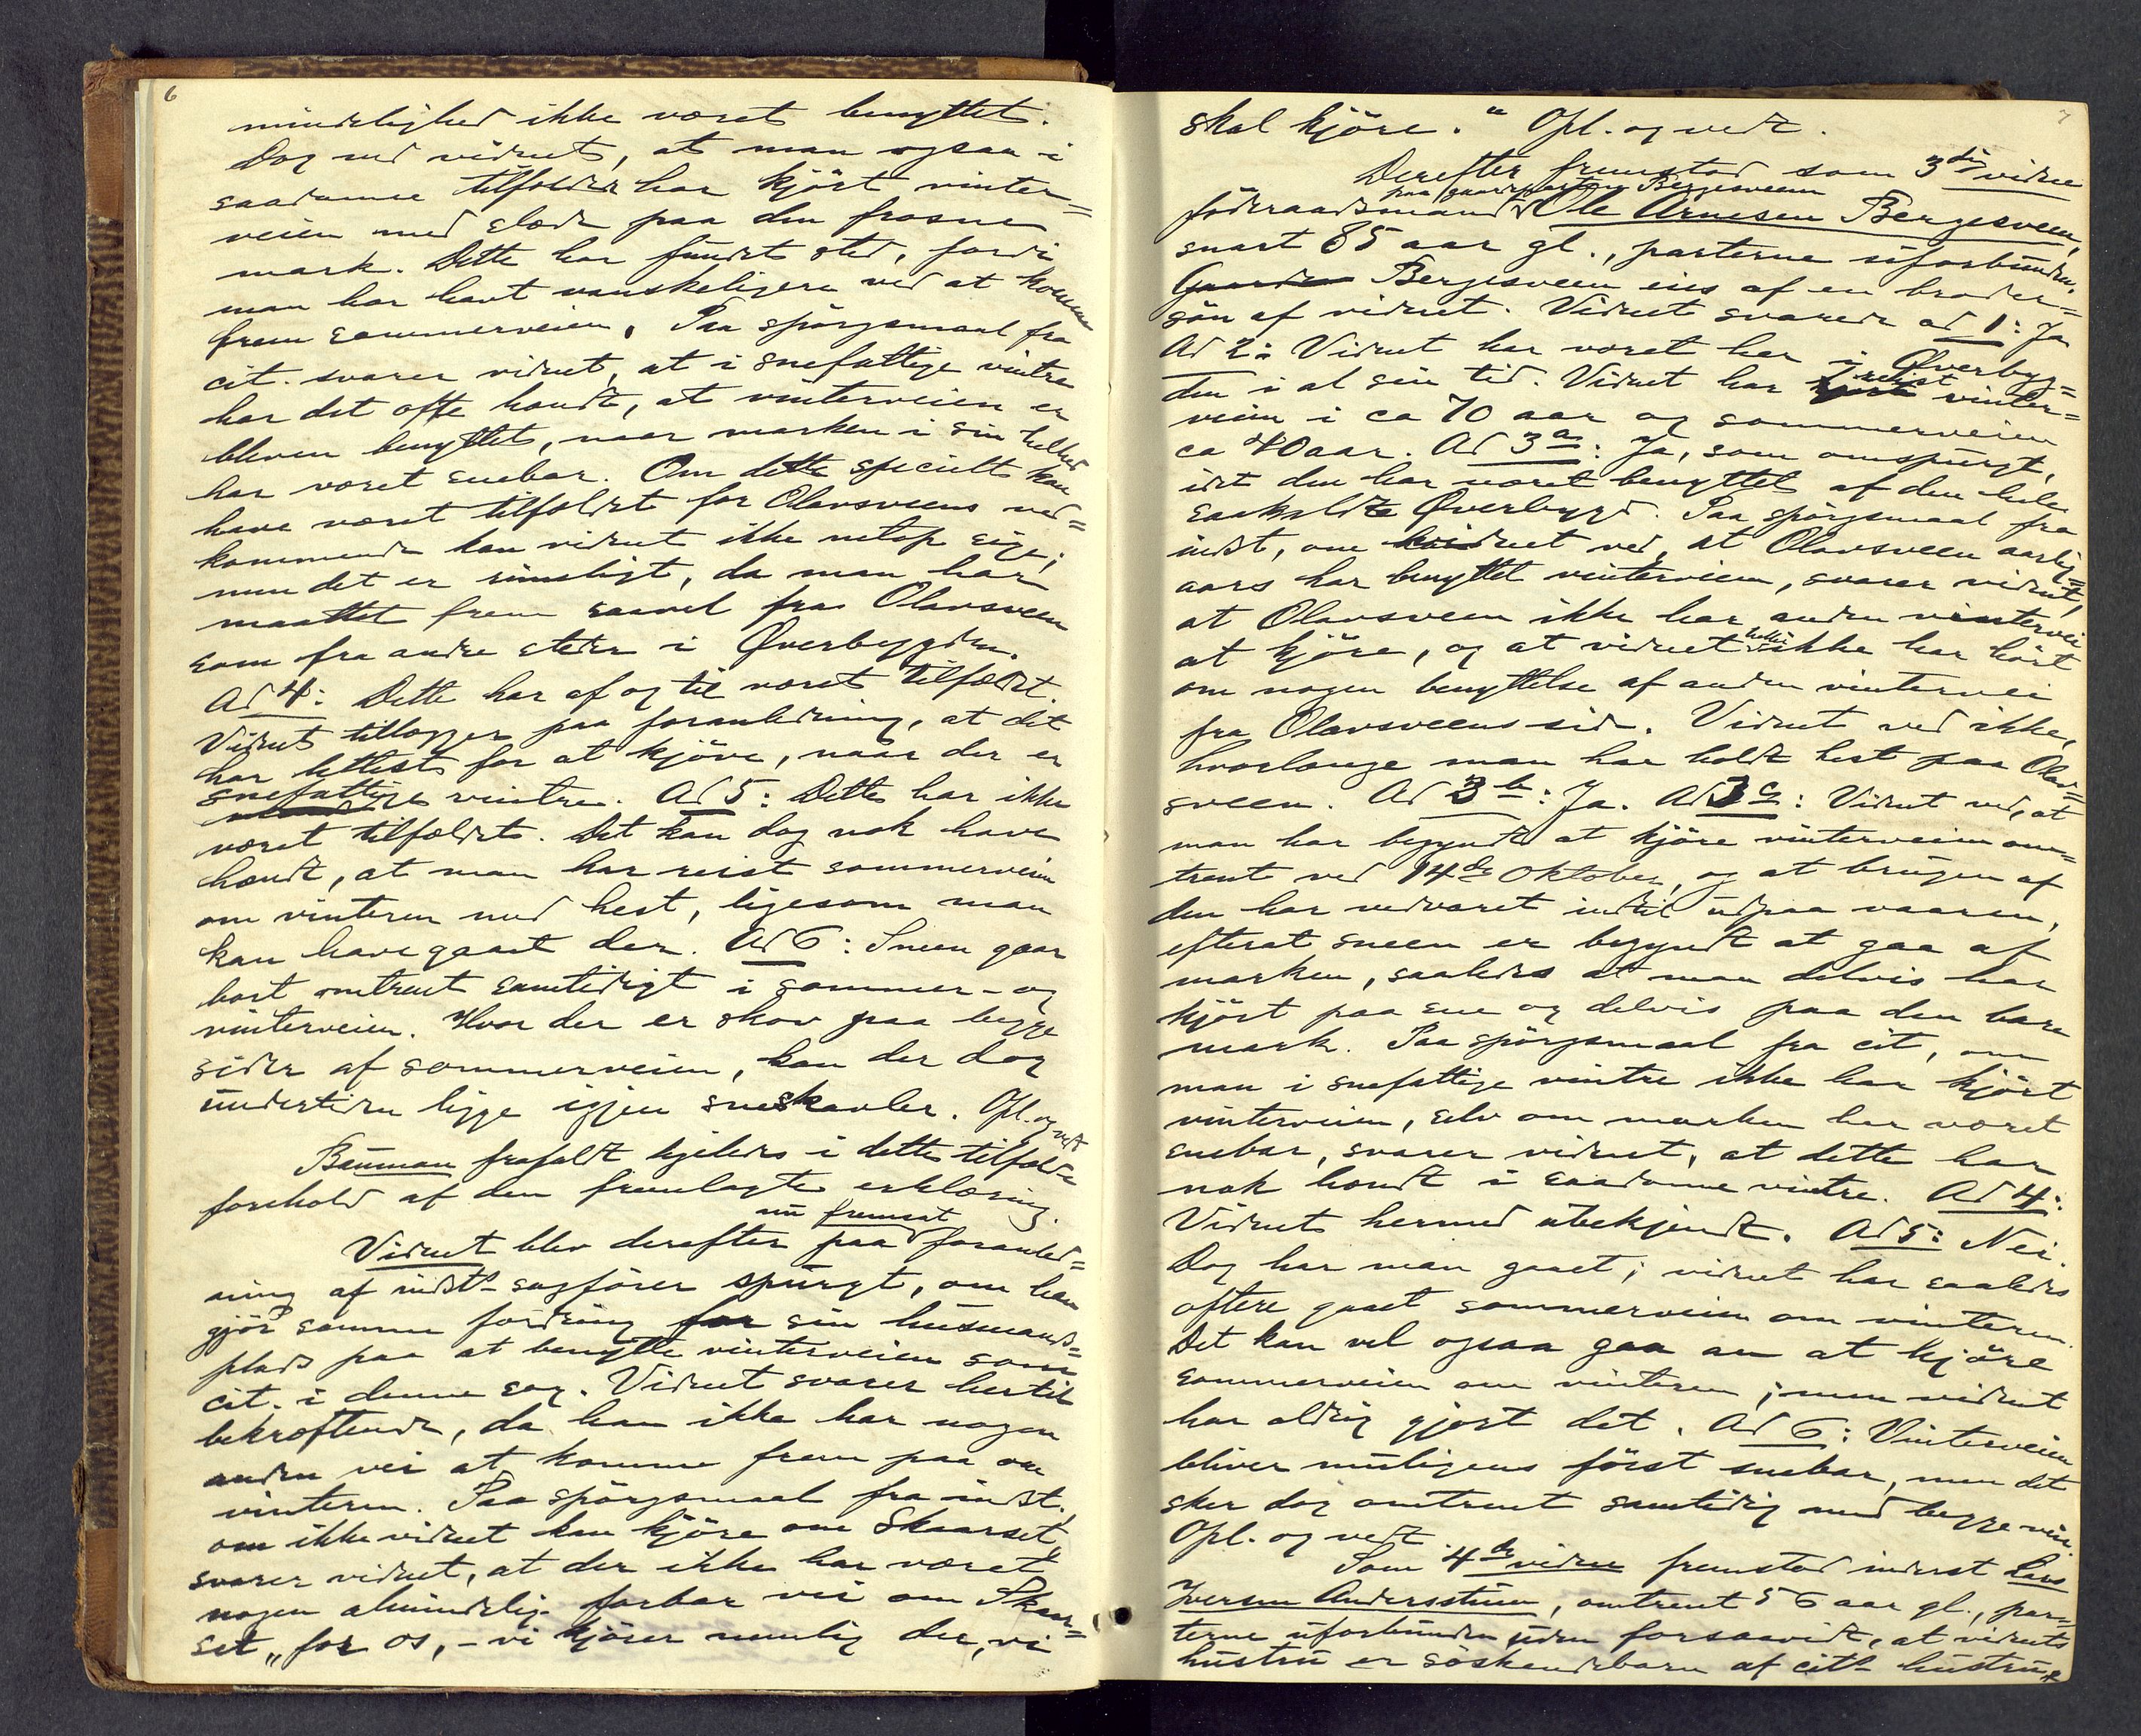 6
mindelighed ikke været benyttet.
Dog ved vidnet, at man ogsaa i
saadanne tilfælder har kjört vinter=
veien med slæde paa den frosne
mark. Dette har fundet sted, fordi
man har havt vanskeligere ved at komme
frem sommerveien. Paa spörgsmaal fra
cit. svarer vidnet, at i snefattige vintre
har det ofte hændt, at vinterveien er
bleven benyttet, naar marken i sin helhed
har været snebar. Om dette specielt kan
have været tilfældet for Olavsveens ved=
kommende kan vidnet ikke netop sige;
men det er rimeligt, da man har
maattet frem saavel fra Olavsveen
som fra andre steder i Øverbygden.
Ad 4: Dette har af og til været tilfældet.
Vidnet tillægger paa foranledning, at det
har lettest for at kjöre, naar der er
snefattige vintre. Ad 5: Dette har ikke
været tilfældet. Det kan dog nok have
hændt, at man har reist sommerveien
om vinteren med hest, ligesom man
kan have gaaet der. Ad 6: Sneen gaar
bort omtrent samtidigt i sommer- og
vinterveien. Hvor der er skov paa begge
sider af sommerveien, kan der dog
undertiden ligge igjen sneskavler. Opl. og vedt.
Bauman frafaldt ligeledes i dette tilfælde
forehold af den fremlagte erklæring.
Vidnet blev derefter paa nu fremsat foranled=
ning af indst.s sagförer spurgt, om han
gjör samme fordring for sin husmands=
plads paa at benytte vinterveien som
cit. i denne sag. Vidnet svarer hertil
bekræftende, da han ikke har nogen
anden vei at komme frem paa om
vinteren. Paa spörgsmaal fra indst.,
om ikke vidnet kan kjöre om Skaarset,
svarer vidnet, at der ikke har været
nogen almindelig farbar vei om Skaar=
set „for os, - vi kjörer nemlig der, vi
7
skal kjöre." Opl. og vedt.
Derefter fremstod som 3die vidne
föderaadsmand paa gaardparten Bergesveen Ole Arnesen Bergesveen,
snart 85 aar gl., parterne uforbunden.
Gaarden Bergesveen eies af en broder=
sön af vidnet. Vidnet svarede ad 1: Ja
Ad 2: Vidnet har været her i Øverbyg=
den i al sin tid. Vidnet har reist vinter=
veien i ca 70 aar og sommerveien
ca 40 aar. Ad 3a: Ja, som omspurgt,
idet den har været benyttet af den hele
saakaldte Øverbygd. Paa spörgsmaal fra
indst., om vidnet ved, at Olavsveen aarlig=
aars har benyttet vinterveien, svarer vidnet,
at Olavsveen ikke har anden vintervei
at kjöre, og at vidnet heller ikke har hört
om nogen benyttelse af anden vintervei
fra Olavsveens side. Vidnet ved ikke,
hvorlænge man har holdt hest paa Olav=
sveen. Ad 3b: Ja. Ad 3c: Vidnet ved, at
man har begyndt at kjöre vinterveien om=
trent ved 14de oktober, og at brugen af
den har vedvaret indtil udpaa vaaren,
efterat sneen er begyndt at gaa af
marken, saaledes at man delvis har
kjört paa sne og delvis paa den bare
mark. Paa spörgsmaal fra cit., om
man i snefattige vintre ikke har kjört
vinterveien, selv om marken har været
snebar, svarer vidnet, at dette har
nok hændt i saadanne vintre. Ad 4:
Vidnet hermed ubekjendt. Ad 5: Nei.
Dog har man gaaet; vidnet har saaledes
oftere gaaet sommerveien om vinteren.
Det kan vel ogsaa gaa an at kjöre
sommerveien om vinteren; men vidnet
har aldrig gjort det. Ad 6: Vinterveien
bliver muligens först snebar, men det
sker dog omtrent samtidig med begge veie.
Opl. og vedt.
Som 4de vidne fremstod inderst Lars
Iversen Andersstuen, omtrent 56 aar gl., par=
terne uforbunden uden forsaavidt, at vidnets
hustru er söskendebarn af cit.s hustru.